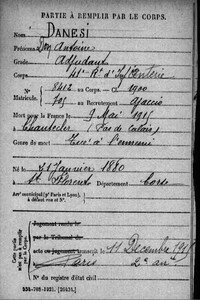 PARTIE À REMPLIR PAR LE CORPS.
Nom DANESI
Prénoms Don Antoine
Grade Adjudant
Corps d'Infanterie
N° 8412 au Corps. — Cl. 1900
Matricule. 795 au Recrutement Ajaccio
Mort pour la France le 9 Mai 1915
à (Pas de Calais)
Genre de mort Tué à l'ennemi
Né le 21 Janvier 1880
à St Florent Département Corse
Arr' municipal (p' Paris et Lyon),
à défaut rue et N°.
Cette partie n'est pas à remplir par le Corps.
Jugement rendu le
par le Tribunal de
acte ou jugement transcrit le 11 Décembre
à Paris 2e arr
N° du registre d'état civil